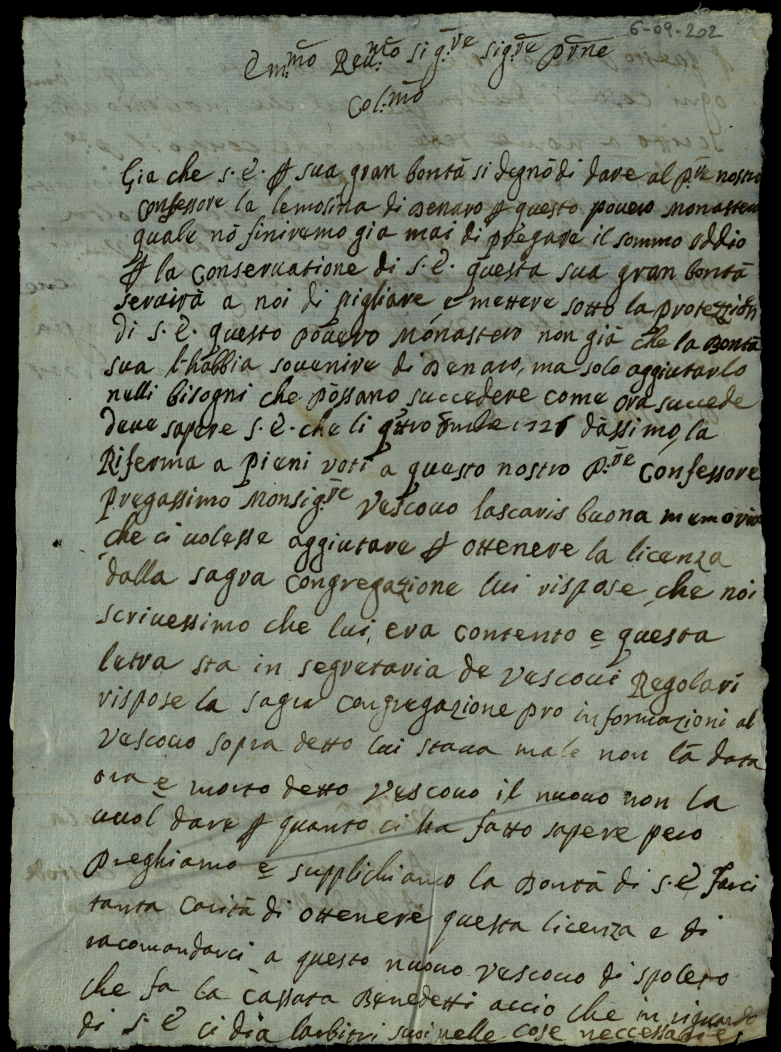 6-09-202
Em.mo Reu.mo Sig.re Sig.re Prne
Col.mo
Gia che S. E. ꝑ sua gran bontà si degnò di dare al P.re nostro
Confessore la lemosina di Denaro ꝑ questo pouero Monastero
quale nō finiremo gia mai di pregare il sommo Iddio
ꝑ la Conseruatione di S. E. questa sua gran bontà
seruirà a noi di pigliare e mettere sotto la protezzion
di S. E. questo pouero Monastero non già che la Bontà
sua l'habbia souenire di Denaro, ma solo aggiutarlo
nelli bisogni che possano succedere come ora succede
deue sapere S. E. che li 1726 dassimo la
Riferma a pieni voti a questo nostro P.re Confessore
Pregassimo Monsig.re Vescouo lascaris buona memoria
che ci uolesse aggiutare ꝑ ottenere la licenza
dalla sagra Congregazione lui rispose che noi
scriuessimo che lui era Contento e questa
letra sta in segretaria de Vescoui Regolari
rispose la sagra Congregazione pro informazioni al
Vescouo sopra detto lui staua male non là data
ora e morto detto Vescouo il nuouo non la
uuol dare ꝑ quanto ci ha fatto sapere pero
Preghiamo e supplichiamo la Bontà di S. E. farci
tanta carità di ottenere questa licenza e di
racomandarci a questo nuouo Vescouo di spoleto
che fa la Cassata Benedetti accio che in riguardo
di S. E. ci dia larbitri suoi nelle cose neccessarie